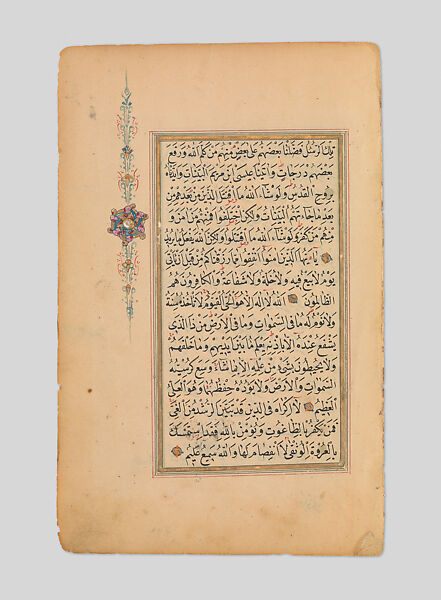 تلك الرسل فضلنا بعضهم على بعض منهم من كلم الله ورفع
بعضهم درجات واتينا عيسى ابن مريم البينات وايدناه
بروح القدس ولو شاء الله ما اقتتل الذين من بعدهم من
بعد ما جاءتهم البينات ولكن اختلفوا فمنهم من امن و
منهم من كفر ولو شاء الله ما اقتتلوا ولكن الله يفعل ما يريد
يا ايها الذين امنوا انفقوا مما رزقناكم من قبل ان ياتي
يوم لا بيع فيه ولا خلة ولا شفاعة والكافرون هم
الظالمون الله لا اله الا هو الحي القيوم لا تاخذه سنة
ولا نوم له ما في السموات وما في الارض من ذا الذي
يشفع عنده الا باذنه يعلم ما بين ايديهم وما خلفهم
ولا يحيطون بشيء من علمه الا بما شاء وسع كرسيه
السموات والارض ولا يؤده حفظهما وهو العلي
العظيم لا اكراه في الدين قد تبين الرشد من الغي
فمن يكفر بالطاغوت ويؤمن بالله فقد استمسك
بالعروة الوثقى لا انفصام لها والله سميع عليم